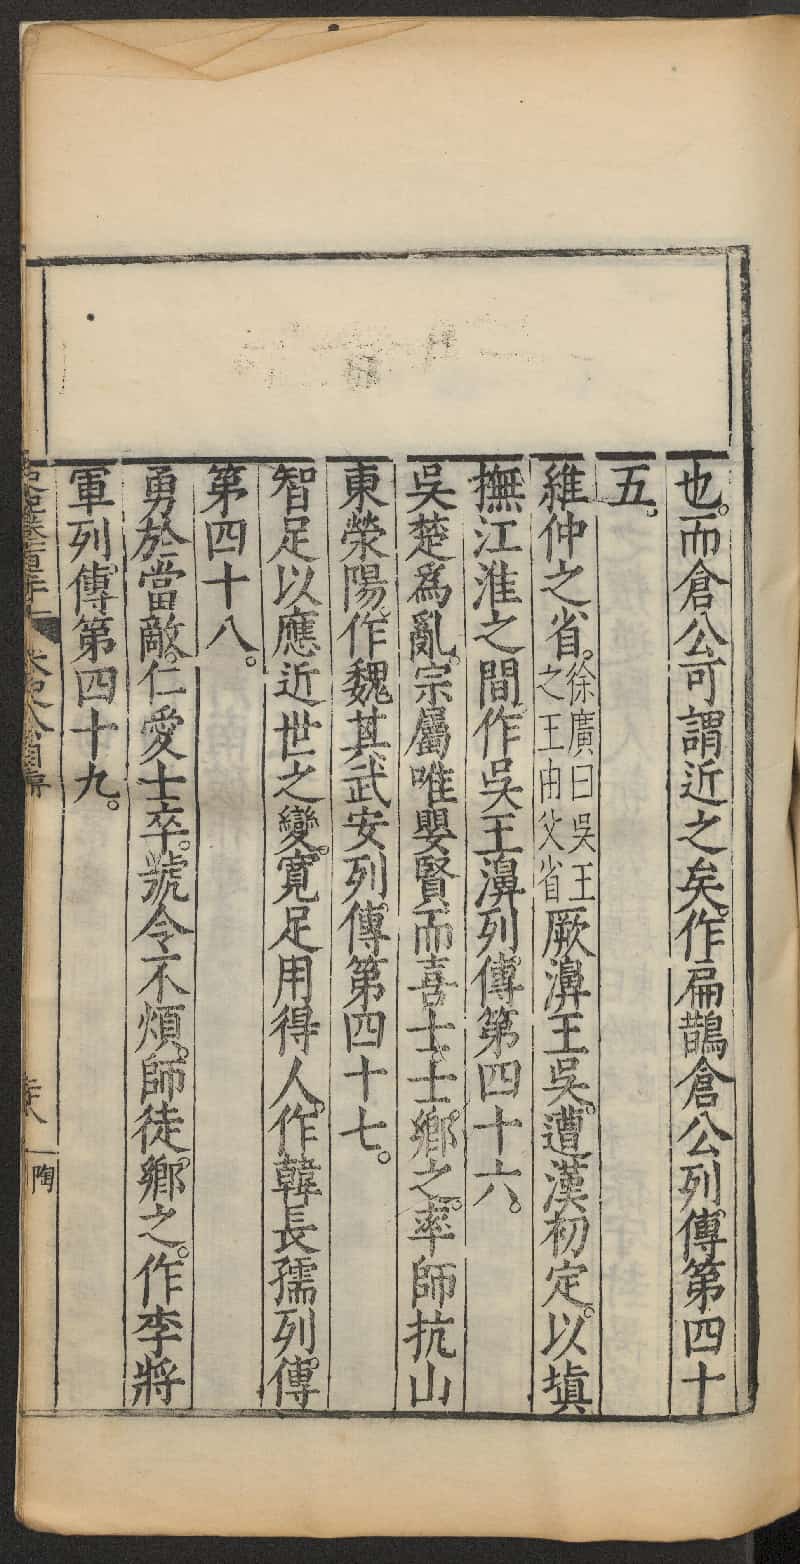 也。而倉公可謂近之矣。作扁鵲倉公列傳第四十
五。
維仲之省。徐廣曰吳王之王由父省厥濞王吳。遭漢初定。以塡
撫江淮之間。作吳王濞列傳第四十六。
吳楚爲亂。宗屬唯嬰賢而喜士。士鄉之。率師抗山
東滎陽。作魏其武安列傳第四十七。
智足以應近世之變。寬足用得人。作韓長孺列傳
第四十八。
勇於當敵。仁愛士卒。號令不煩。師徒鄉之。作李將
軍列傳第四十九。
陶